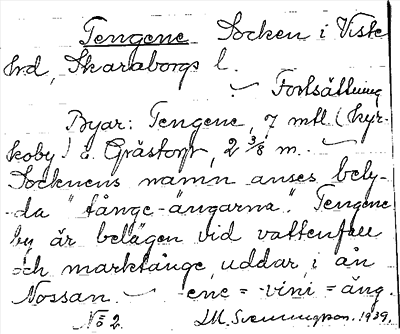 Tengene Socken i Viste
hrd, Skaraborgs l.
Fortsättning
Byar: Tengene, 7 mtl (kyr-
koby) o. Grästorp, 2 3/8 m.
Socknens namn anses bety-
da "tånge-ängarna". Tengene
by är belägen vid vattenfall
och marktånge, uddar, i ån
Nossan. - -ene = -vini = äng.
No 2. LM. Svenungson. 1939.